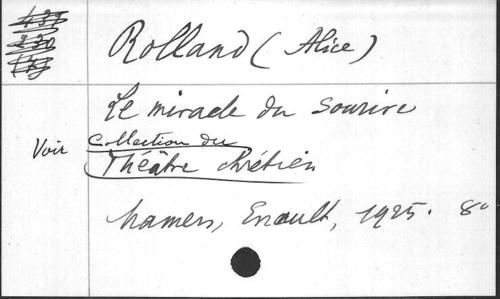 Rolland (Alice)
Le miracle du sourire
Voir Collection du
Théâtre chrétien
Mamers, Enault, 1925. 8°